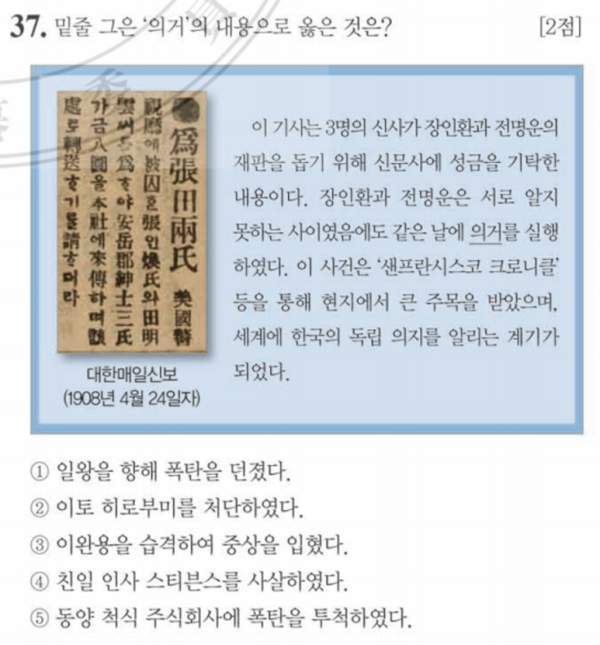 37. 밑줄 그은 '의거'의 내용으로 옳은 것은? [2점]
爲張田兩氏 美國
被囚 張仁煥氏와 田明
雲 爲 야 安岳郡紳士三氏
가 金八圜을 本社에 來傳하며 該
處로 轉送 기를 請 더라
이 기사는 3명의 신사가 장인환과 전명운의
재판을 돕기 위해 신문사에 성금을 기탁한
내용이다. 장인환과 전명운은 서로 알지
못하는 사이였음에도 같은 날에 의거를 실행
하였다. 이 사건은 '샌프란시스코 크로니클'
등을 통해 현지에서 큰 주목을 받았으며,
세계에 한국의 독립 의지를 알리는 계기가
되었다.
대한매일신보
(1908년 4월 24일자)
① 일왕을 향해 폭탄을 던졌다.
② 이토 히로부미를 처단하였다.
③ 이완용을 습격하여 중상을 입혔다.
④ 친일 인사 스티븐스를 사살하였다.
⑤ 동양 척식 주식회사에 폭탄을 투척하였다.